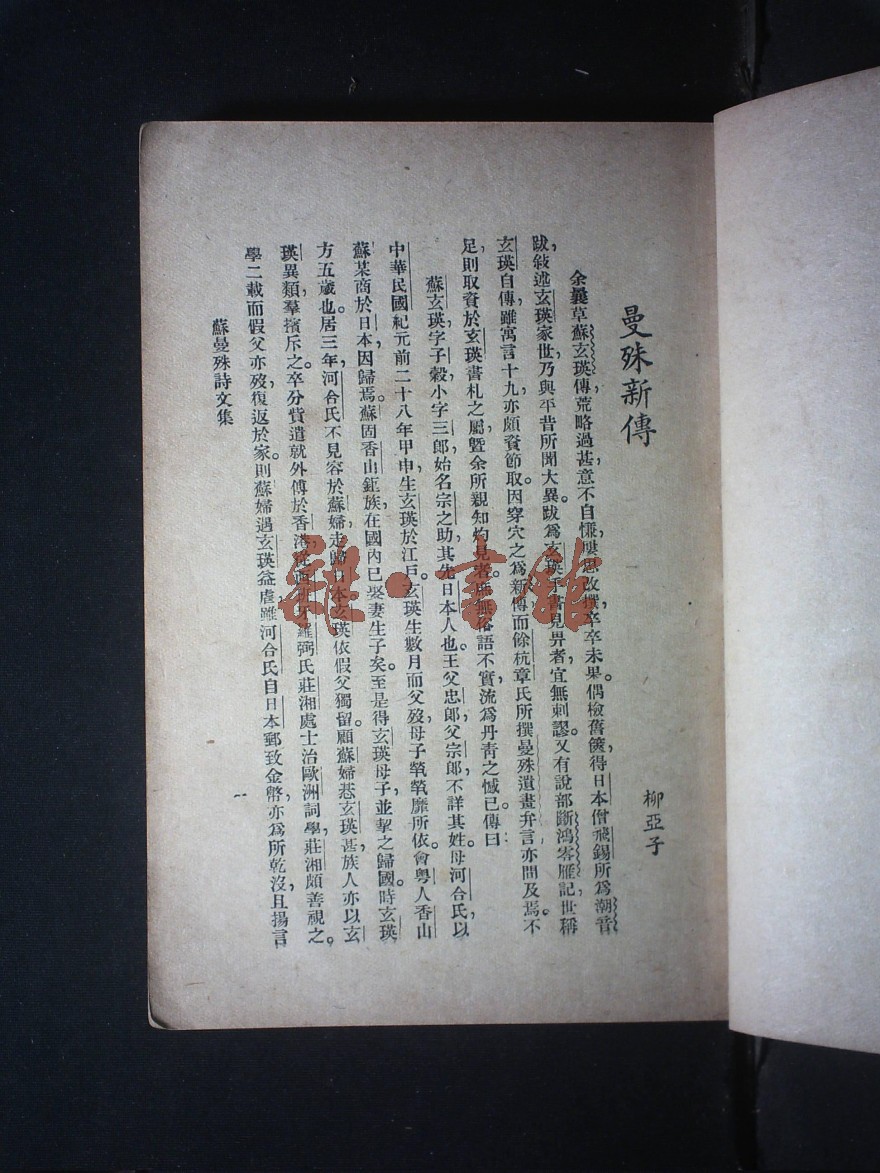 曼殊新傳
柳亞子
余曩草蘇玄瑛傳，荒略過甚，意不自慊，屢思改撰，卒卒未果。偶檢舊篋，得日本僧飛錫所爲潮音
跋，敍述玄瑛家世，乃與平昔所聞大異。跋爲玄瑛手書見畀者，宜無剌謬。又有說部斷鴻零雁記，世稱
玄瑛自傳，雖寓言十九，亦頗資節取。因穿穴之爲新傳，而餘杭章氏所撰曼殊遺畫弁言，亦間及焉。不
足，則取資於玄瑛書札之屬，曁余所親知灼見者。庶無俗語不實，流爲丹靑之憾已。傳曰：
蘇玄瑛，字子穀，小字三郎，始名宗之助，其先日本人也。王父忠郎，父宗郎，不詳其姓。母河合氏，以
中華民國紀元前二十八年甲申，生玄瑛於江戶。玄瑛生數月而父歿，母子煢煢靡所依。會粤人香山
蘇某商於日本，因歸焉。蘇固香山鉅族，在國內已娶妻生子矣。至是得玄瑛母子，並挈之歸國。時玄瑛
方五歲也。居三年，河合氏不見容於蘇婦，走歸日本，玄瑛依假父獨留。顧蘇婦惎玄瑛甚，族人亦以玄
瑛異類，羣擯斥之。卒分貲遣就外傅於香港，從西班牙羅弼氏莊湘處士治歐洲詞學，莊湘頗善視之。
學二載而假父亦歿，復返於家。則蘇婦遇玄瑛益虐，雖河合氏自日本郵致金幣，亦爲所乾沒，且揚言
蘇曼殊詩文集
一
雜·書館